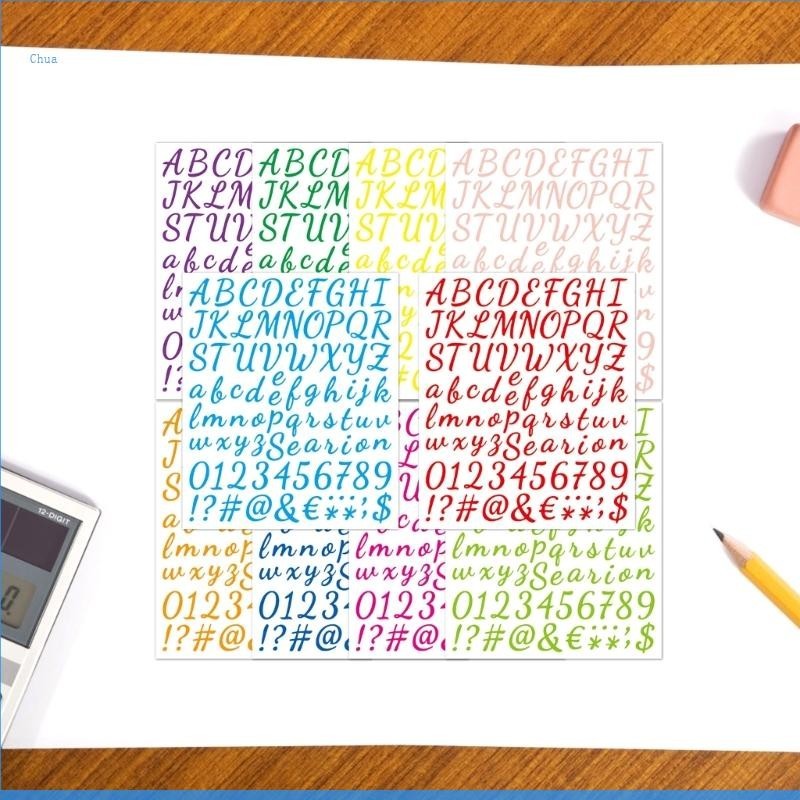 Chua
ABCD ABCD ABCD ABCDEFGHI
JKLM JKLM JKLM JKLMNOPQR
STUV STUV STUV STUVWXYZ
abcde abcde abcde abcdefghijk
ABCDEFGHI ABCDEFGHI
JKLMNOPQR JKLMNOPQR
STUVWXYZ STUVWXYZ
abcdefghijk abcdefghijk
lmnopqrstuv lmnopqrstuv
wxyzSearion wxyzSearion
0123456789 0123456789
!?#@&€**';$ !?#@&€**';$
12-DIGIT
lmnop lmnop lmnop lmnopqrstuv
wxyzS wxyzS wxyzS wxyzSearion
01234 01234 01234 0123456789
!?#@& !?#@& !?#@& !?#@&€**';$